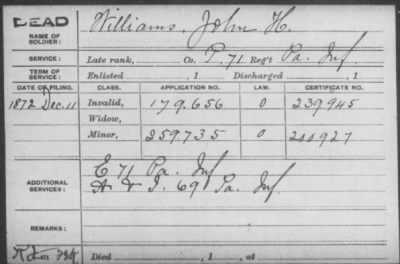 DEAD
NAME OF SOLDIER: Williams, John H.
SERVICE: Late rank, Co. P. 71 Reg't Pa. Inf
TERM OF SERVICE: Enlisted , 1 Discharged , 1
DATE OF FILING. CLASS. APPLICATION NO. LAW. CERTIFICATE NO.
1872 Dec. 11 Invalid, 179.656 O 239945
Widow,
Minor, 259735 O 200927
ADDITIONAL SERVICES: E 71 Pa. Inf.
A & I. 69 Pa. Inf.
REMARKS:
Died , 1 , at